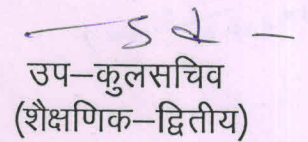 उप–कुलसचिव
(शैक्षणिक–द्वितीय)